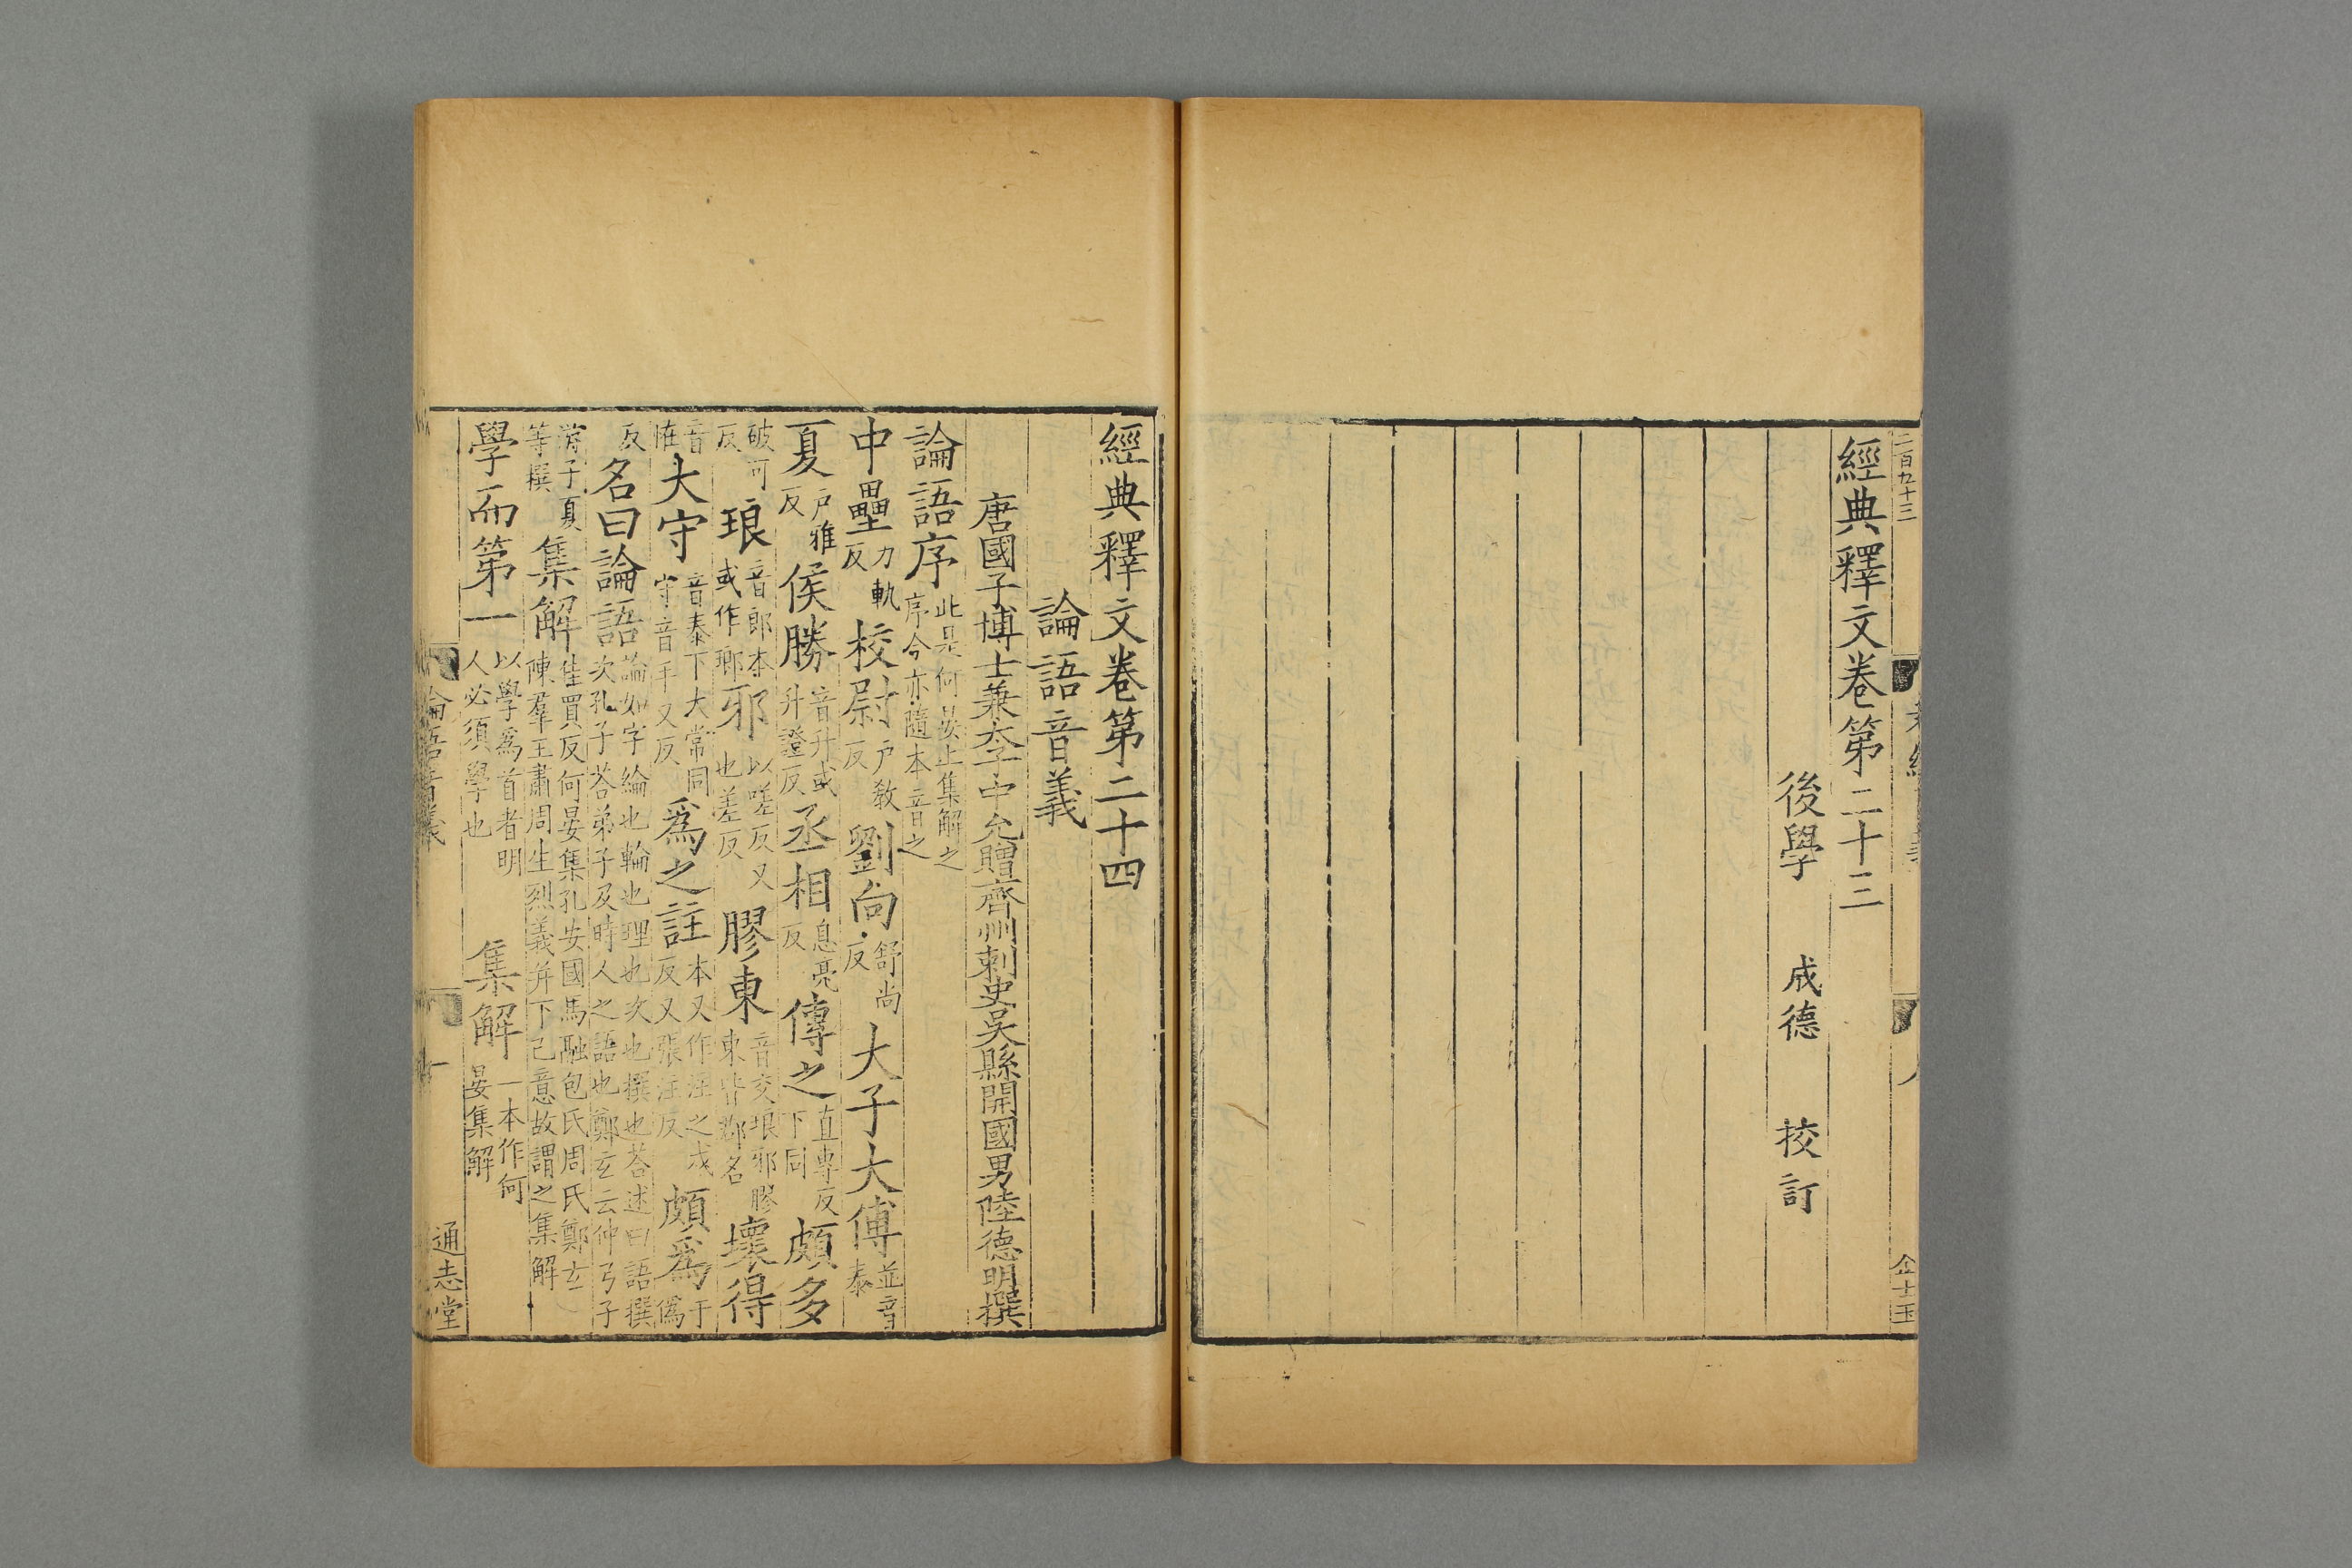 二百九十三
企士玉
經典釋文卷第二十三
後學 成德 挍訂
經典釋文卷第二十四
論語音義
唐國子博士兼太子中允贈齊州刺史吳縣開國男陸德明撰
論語序此是何晏上集解之序今亦隨本音之
中壘力軌反校尉户教反劉向舒尚反大子大傅並音泰
夏户雅反侯勝音升或升證反丞相息亮反傳之直專反下同頗多
破可反琅音郎本或作瑯邪以嗟反又也差反膠東音交琅邪膠東皆郡名壞得
音怪大守音泰下大常同守音手又反爲之註本又作注之戍反又張注反頗爲于僞
反名曰論語論如字綸也輪也理也次也撰也荅述曰語撰次孔子荅弟子及時人之語也鄭玄云仲弓子
游子夏等撰集解佳買反何晏集孔安國馬融包氏周氏鄭玄陳羣王肅周生烈義并下己意故謂之集解
學而第一以學爲首者明人必須學也集解一本作何晏集解
論語音義
通志堂